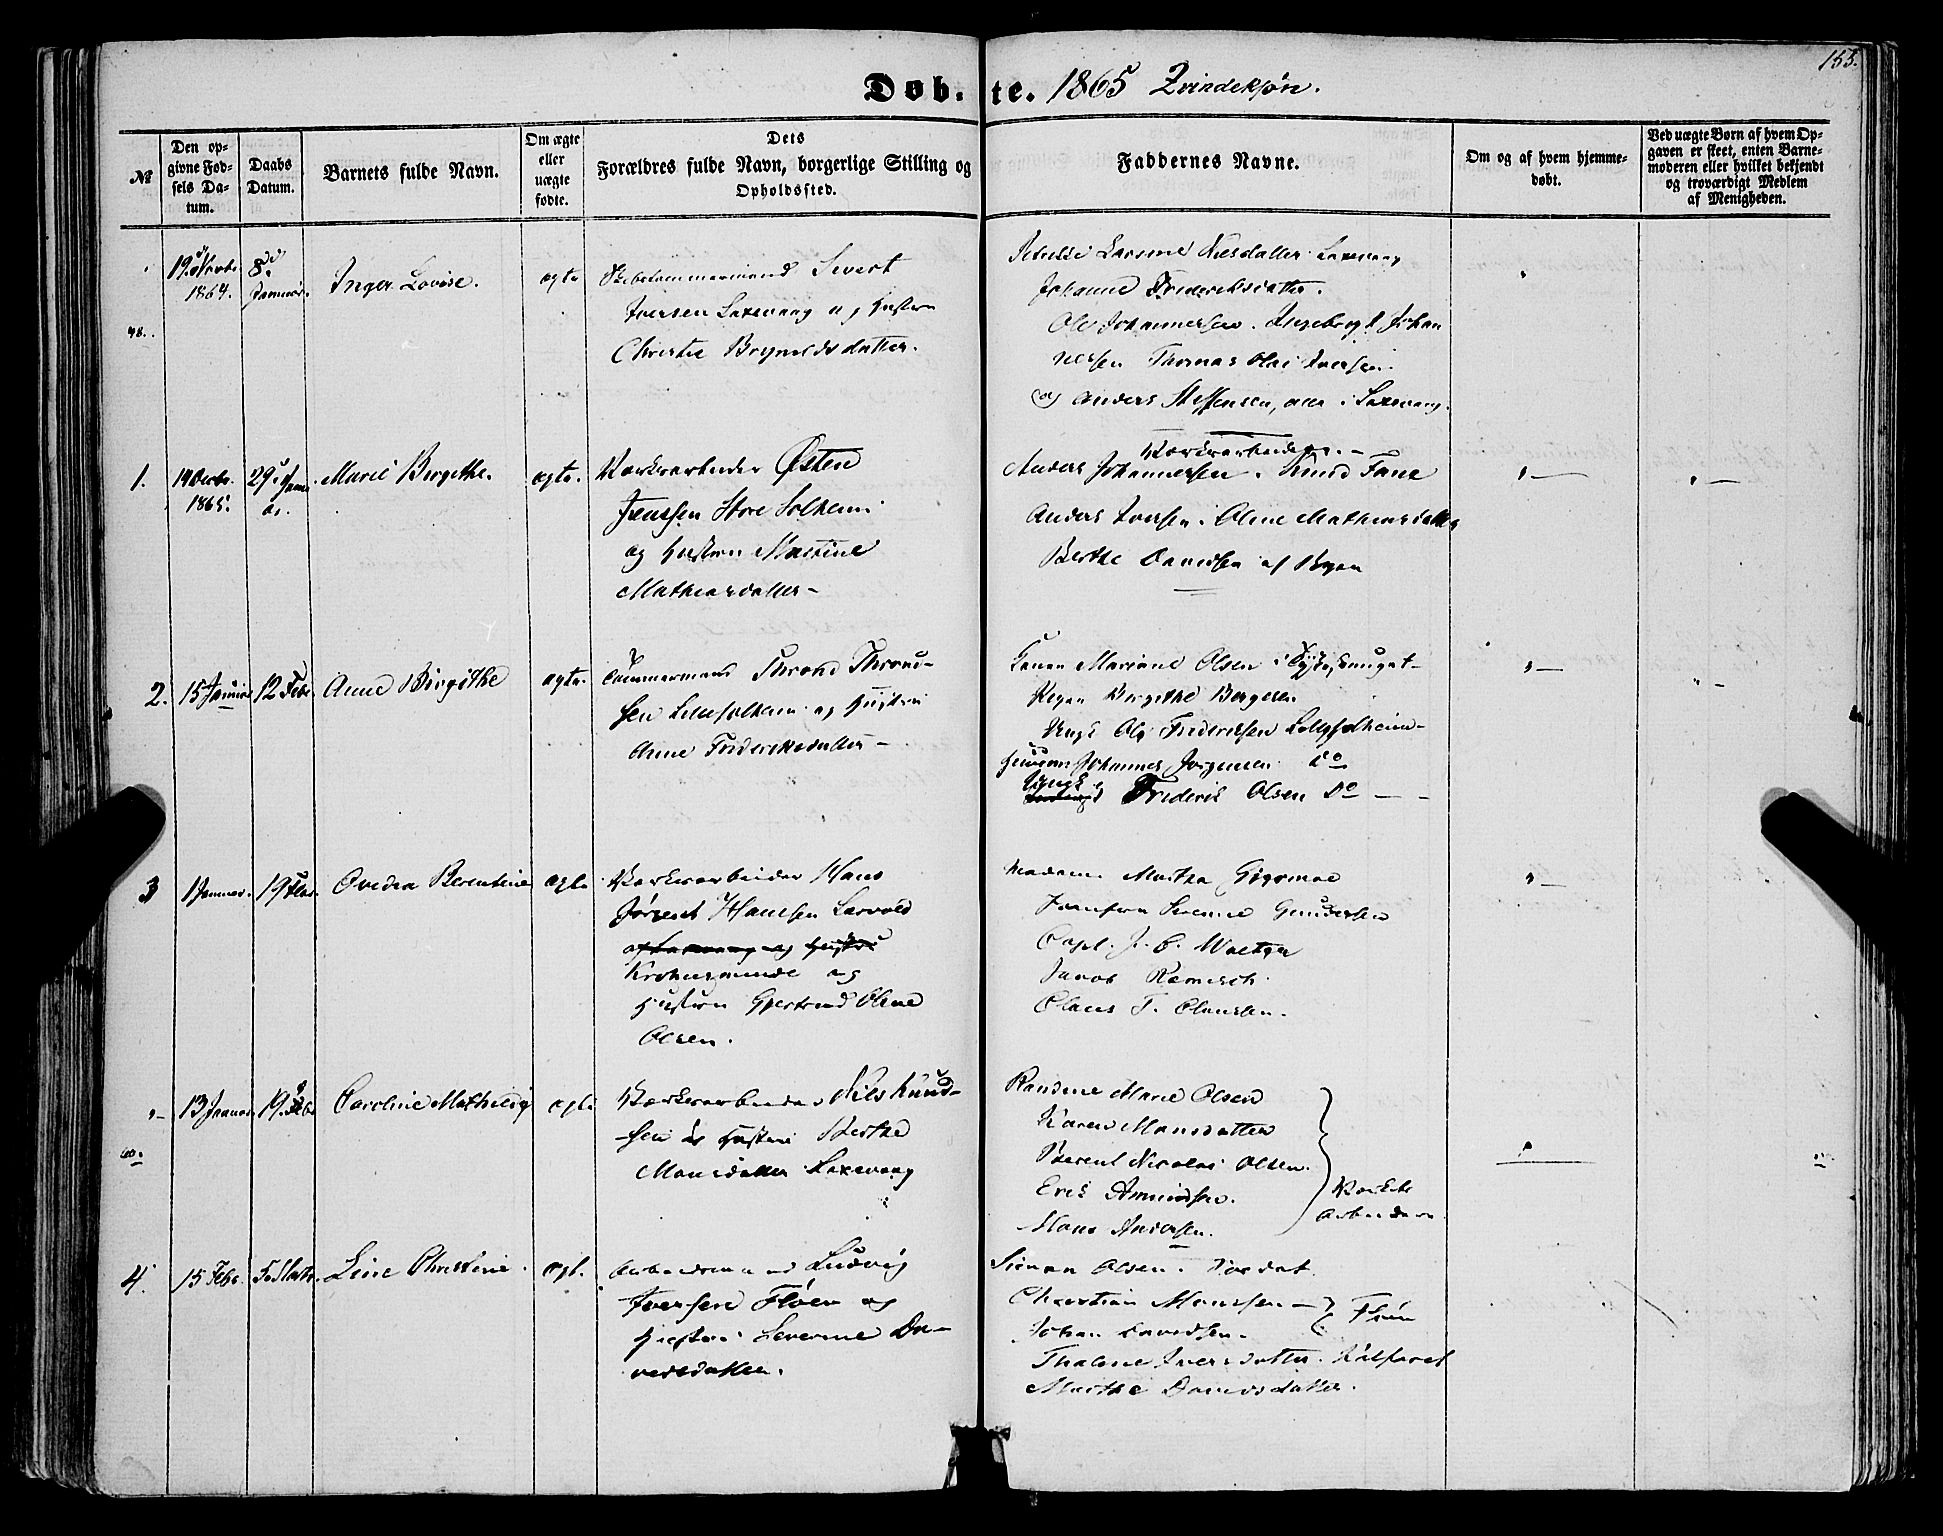 155.
Døb- te. 1865 Qvindekjøn.
№
Den op-
givne Fød-
sels Da-
tum.
Daabs
Datum.
Barnets fulde Navn.
Om ægte
eller
uægte
fødte.
Dets
Forældres fulde Navn, borgerlige Stilling og
Opholdssted.
Faddernes Navne.
Om og af hvem hjemme-
døbt.
Ved uægte Børn af hvem Op-
gaven er skeet, enten Barne-
moderen eller hvilket bekjendt
og troværdigt Medlem
af Menigheden.
19 Novbr
1864.
8de
Januar.
Inger Lovise.
ægte
Skibstømmermand Sivert
Iversen Laxevaag og Hustru
Christie Brynildsdatter.
Laxevaag
Johanne Frederiksdatter.
Ole Johannesen. Ingebrigt Johan
nessen Thomas Olai Iversen
og Anders Steffensen, alle i Laxevaag.
48.
1.
1865.
29 Janu
ar.
Marie Birgithe.
ægte.
Værksarbeider Østen
Jenssen Store Solheim
og Hustru Martine
Mathiasdatter
Værksarbeidere.
Anders Johannessen. Knud Fane
Anders Iversen. Oline Mathiasdatter
Berthe Davidsen af Byen
2.
15 Januar
12 Febr.
Anne Birgithe
ægte.
Tømmermand Thrond Thrond-
sen Lille Solheim og Hustru
Anne Frederiksdatter
Mariane Olsen
Pigen Birgithe Børgesen
Ungk Ole Fredriksen Lille Solheim
Huusmand Johannes Jørgensen do
Ungk Frederik Olsen do
3
1 Januar.
19 Febr.
Ovedia Berentine
ægte
Værksarbeider Hans
Jørgen Hansen Larvold
af Laxevaag og Hustru
Krohnsminde og
Hustru Gjertrud Oline
Olsen.
Madam Martha
Jomfru Severine Gundersen
Capt. J. C. Woltzen
Jacob Ramisch
Claus T. Clausen.
13 Januar
19 Febr
Caroline Mathilde
ægte
Værksarbeider Nils Knud-
sen og Hustru Berthe
Monsdatter Laxevaag
Randine Marie Olsen
Karen Monsdatter
Berent Nicolai Olsen.
Erik Amundsen.
Hans Andersen.
Værks
arbeidere
4.
15 Febr.
5 Marts.
Line Christine.
ægt.
Arbeidsmand Ludvig
Iversen Fløen og
Hustru Severine Da-
vidsdatter.
Simon Olsen. Soldat
Christian Monssen
Johan Davidsen.
Fløen
Thaline Iversdatter. Kalfaret
Marthe Davidsdatter.